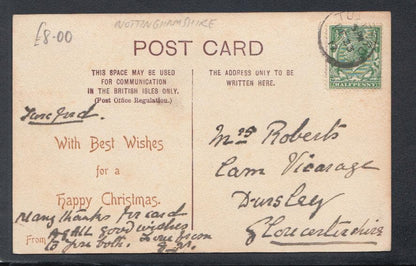 £8-00
NOTTINGHAMSHIRE
POST CARD
THIS SPACE MAY BE USED
FOR COMMUNICATION
IN THE BRITISH ISLES ONLY.
(Post Office Regulation.)
THE ADDRESS ONLY TO BE
WRITTEN HERE.
HALFPENNY
With Best Wishes
for a
Happy Christmas.
Many thanks for card
& all good wishes
From to you both. Love from
Mrs Roberts
Cam Vicarage
Dursley
Gloucestershire